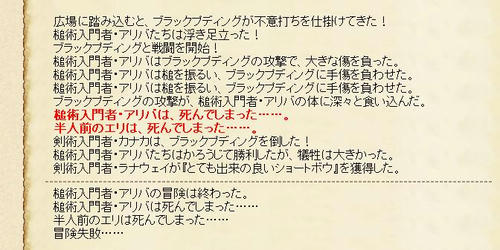 広場に踏み込むと、ブラックプディングが不意打ちを仕掛けてきた!
槌術入門者・アリバたちは浮き足立った!
ブラックプディングと戦闘を開始!
槌術入門者・アリバはブラックプディングの攻撃で、大ぎな傷を負った。
槌術入門者・アリバは槌を振るい、ブラックプディングに手傷を負わせた。
槌術入門者・アリバは槌を振るい、ブラックプディングに手傷を負わせた。
ブラックプディングの攻撃が、槌術入門者・アリバの体に深々と食い込んだ。
槌術入門者・アリバは、死んでしまった……。
半人前のエリは、死んでしまった……。
剣術入門者・カナカは、ブラックプディングを倒した!
槌術入門者・アリバたちはかろうじて勝利したが、犠牲は大きかった。
剣術入門者・ラナウェイが『とても出来の良いショートボウ』を獲得した。
槌術入門者・アリバの冒険は終わった。
槌術入門者・アリバは死んでしまった……
半人前のエリは死んでしまった……
冒険失敗……